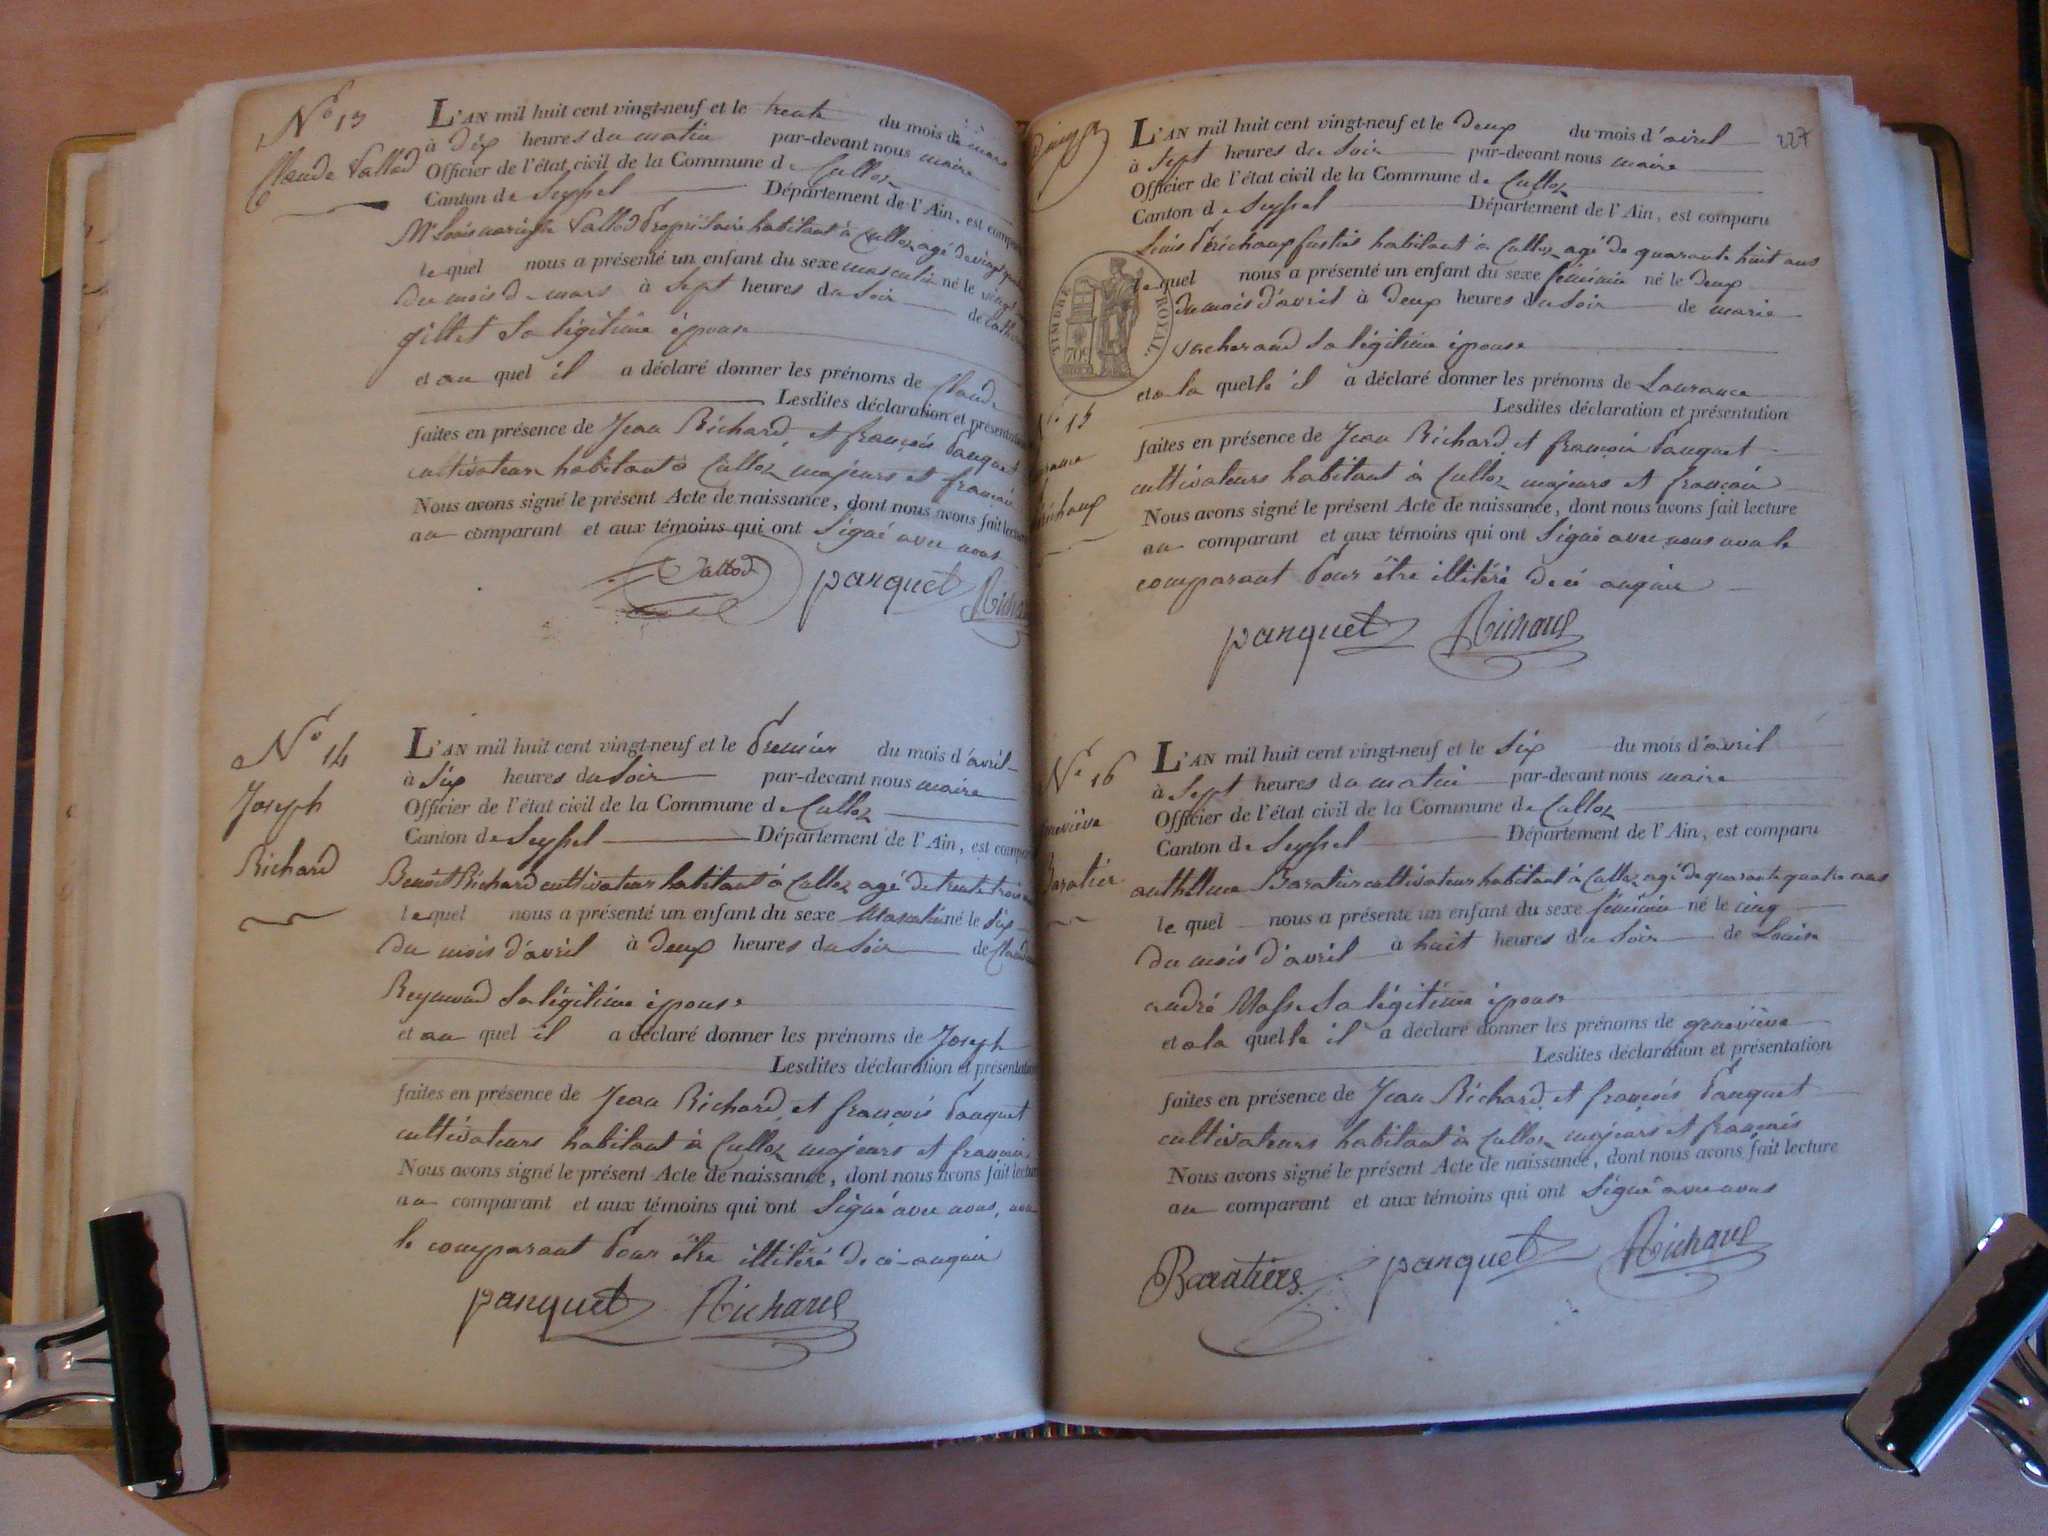 N.o 13
Claude Vallod
L'AN mil huit cent vingt-neuf et le trente du mois de mars
à dix heures du matin par-devant nous maire
Officier de l'état civil de la Commune de Culloz
Canton de Seyssel Département de l'Ain, est comparu
Vallod Propriétaire habitant à Culloz agé de vingt
le quel nous a présenté un enfant du sexe masculin né le vingt
du mois de mars à Sept heures du Soir de
gillet Sa légitime épouse
et au quel il a déclaré donner les prénoms de Claude
Lesdites déclaration et présentation
faites en présence de Jean Richard et françois Panquet
cultivateurs habitant à Culloz majeurs et françois
Nous avons signé le présent Acte de naissance, dont nous avons fait lecture
au comparant et aux témoins qui ont Signé avec nous
Vallod panquet Richard
N.o 14
Joseph
Richard
L'AN mil huit cent vingt-neuf et le Premier du mois d'avril
à Six heures du Soir par-devant nous maire
Officier de l'état civil de la Commune de Culloz
Canton de Seyssel Département de l'Ain, est comparu
Benoit Richard cultivateur habitant à Culloz agé de trente trois
le quel nous a présenté un enfant du sexe Masculin né le Six
du mois d'avril à deux heures du Soir de
Reymond Sa légitime épouse
et au quel il a déclaré donner les prénoms de Joseph
Lesdites déclaration et présentation
faites en présence de Jean Richard et françois Panquet
cultivateurs habitant à Culloz majeurs et françois
Nous avons signé le présent Acte de naissance, dont nous avons fait lecture
au comparant et aux témoins qui ont Signé avec nous, non
le comparant Pour être illitéré de ce anquis
panquet Richard
227
L'AN mil huit cent vingt-neuf et le Deux du mois d'avril
à Sept heures du Soir par-devant nous maire
Officier de l'état civil de la Commune de Culloz
Canton de Seyssel Département de l'Ain, est comparu
Louis Périchoux habitant à Culloz agé de quarante huit ans
le quel nous a présenté un enfant du sexe féminin né le Deux
du mois d'avril à Deux heures du Soir de marie
Sa légitime épouse
et a la quelle il a déclaré donner les prénoms de Laurance
Lesdites déclaration et présentation
TIMBRE ROYAL
70c
N.o 15
faites en présence de Jean Richard et françois Panquet
cultivateurs habitant à Culloz majeurs et françois
Nous avons signé le présent Acte de naissance, dont nous avons fait lecture
au comparant et aux témoins qui ont Signé avec nous non le
comparant Pour être illitéré de ce anquis
panquet Richard
N.o 16
Baratier
L'AN mil huit cent vingt-neuf et le Six du mois d'avril
à Sept heures du matin par-devant nous maire
Officier de l'état civil de la Commune de Culloz
Canton de Seyssel Département de l'Ain, est comparu
anthelme Baratier cultivateur habitant à Culloz agé de quarante quatre ans
le quel nous a présenté un enfant du sexe féminin né le cinq
du mois d'avril à huit heures du Soir de Louise
andré Masse Sa légitime épouse
et a la quelle il a déclaré donner les prénoms de geneviève
Lesdites déclaration et présentation
faites en présence de Jean Richard et françois Panquet
cultivateurs habitant à Culloz majeurs et français
Nous avons signé le présent Acte de naissance, dont nous avons fait lecture
au comparant et aux témoins qui ont Signé avec nous
Baratiers panquet Richard